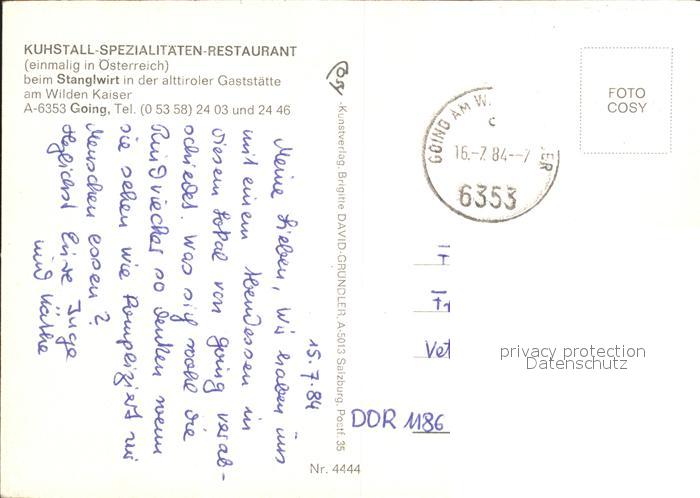 KUHSTALL-SPEZIALITÄTEN-RESTAURANT
(einmalig in Österreich)
beim Stanglwirt in der alttiroler Gaststätte
am Wilden Kaiser
A-6353 Going, Tel. (0 53 58) 24 03 und 24 46
15.7.84
Meine Lieben, wir haben uns
mit einem Abendessen in
diesem Lokal von Going verab-
schiedet. Was sich wohl die
Rindviecher so denken wenn
sie sehen wie kompliziert wir
Menschen essen?
Herzlichst Eure Inge
und Käthe
Cosy
-Kunstverlag, Brigitte DAVID-GRÜNDLER, A-5013 Salzburg, Postf. 35
Nr. 4444
FOTO
COSY
GOING AM W. ER
c
16.-7.84--7
6353
Vet
DDR 1186
privacy protection
Datenschutz